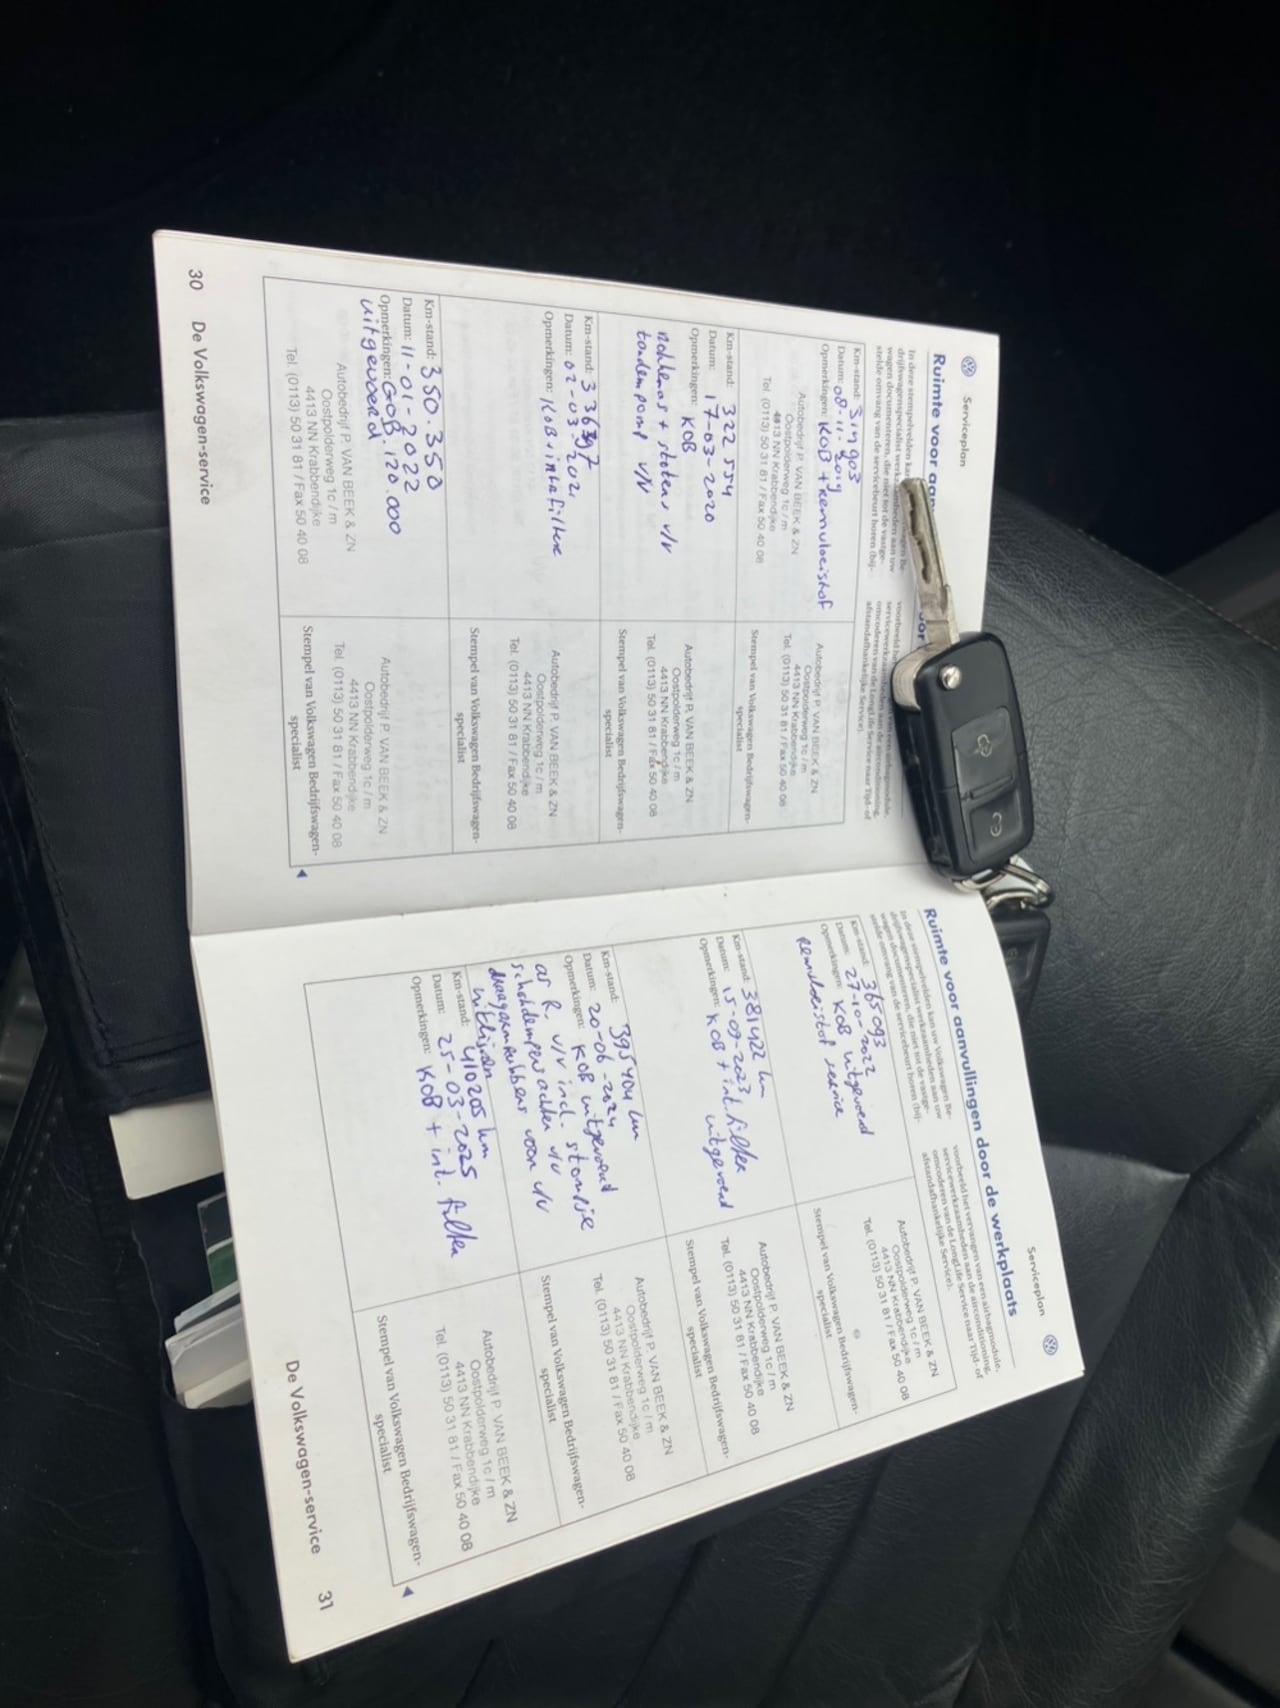 Serviceplan
Ruimte voor aan
In deze stempelvelden kan
drijfswagenspecialist werkzaamheden aan uw
wagen documenteren, die niet tot de vastge-
stelde omvang van de servicebeurt horen (bij-
voorbeeld het vervangen van een airbagmodule,
servicewerkzaamheden aan de airconditioning,
omcoderen van de LongLife Service naar Tijd- of
afstandafhankelijke Service).
Km-stand:
Datum: 08-11-2019
Opmerkingen: KOB + remvloeistof
Autobedrijf P. VAN BEEK & ZN
Oostpolderweg 1c / m
4413 NN Krabbendijke
Tel. (0113) 50 31 81 / Fax 50 40 08
Autobedrijf P. VAN BEEK & ZN
Oostpolderweg 1c / m
4413 NN Krabbendijke
Tel. (0113) 50 31 81 / Fax 50 40 08
Stempel van Volkswagen Bedrijfswagen-
specialist
Km-stand: 322 554
Datum: 17-03-2020
Opmerkingen: KOB
nokkenas + stoters v/v
tandempomp v/v
Autobedrijf P. VAN BEEK & ZN
Oostpolderweg 1c / m
4413 NN Krabbendijke
Tel. (0113) 50 31 81 / Fax 50 40 08
Stempel van Volkswagen Bedrijfswagen-
specialist
Km-stand:
Datum: 02-03-2021
Opmerkingen: KOB + intafilter
Autobedrijf P. VAN BEEK & ZN
Oostpolderweg 1c / m
4413 NN Krabbendijke
Tel. (0113) 50 31 81 / Fax 50 40 08
Stempel van Volkswagen Bedrijfswagen-
specialist
Km-stand: 350.350
Datum: 11-01-2022
Opmerkingen: GOB 120.000
uitgevoerd
Autobedrijf P. VAN BEEK & ZN
Oostpolderweg 1c / m
4413 NN Krabbendijke
Tel. (0113) 50 31 81 / Fax 50 40 08
Autobedrijf P. VAN BEEK & ZN
Oostpolderweg 1c / m
4413 NN Krabbendijke
Tel. (0113) 50 31 81 / Fax 50 40 08
Stempel van Volkswagen Bedrijfswagen-
specialist
30 De Volkswagen-service
Serviceplan
Ruimte voor aanvullingen door de werkplaats
In deze stempelvelden kan uw Volkswagen Be-
drijfswagenspecialist werkzaamheden aan uw
wagen documenteren, die niet tot de vastge-
stelde omvang van de servicebeurt horen (bij-
voorbeeld het vervangen van een airbagmodule,
servicewerkzaamheden aan de airconditioning,
omcoderen van de LongLife Service naar Tijd- of
afstandafhankelijke Service).
Km-stand: 365 093
Datum: 27-10-2022
Opmerkingen: KOB uitgevoerd
Remvloeistof service
Autobedrijf P. VAN BEEK & ZN
Oostpolderweg 1c / m
4413 NN Krabbendijke
Tel. (0113) 50 31 81 / Fax 50 40 08
Stempel van Volkswagen Bedrijfswagen-
specialist
Km-stand: 381422 km
Datum: 15-09-2023
Opmerkingen: KOB + int. filter
uitgevoerd
Autobedrijf P. VAN BEEK & ZN
Oostpolderweg 1c / m
4413 NN Krabbendijke
Tel. (0113) 50 31 81 / Fax 50 40 08
Stempel van Volkswagen Bedrijfswagen-
specialist
Km-stand: 395404 km
Datum: 20-06-2024
Opmerkingen: KOB uitgevoerd
as R v/v incl. stompje
schokdempers achter v/v
draagarmrubbers voor v/v
uitlijnen
Autobedrijf P. VAN BEEK & ZN
Oostpolderweg 1c / m
4413 NN Krabbendijke
Tel. (0113) 50 31 81 / Fax 50 40 08
Stempel van Volkswagen Bedrijfswagen-
specialist
Km-stand: 410205 km
Datum: 25-03-2025
Opmerkingen: KOB + int. filter
Autobedrijf P. VAN BEEK & ZN
Oostpolderweg 1c / m
4413 NN Krabbendijke
Tel. (0113) 50 31 81 / Fax 50 40 08
Stempel van Volkswagen Bedrijfswagen-
specialist
De Volkswagen-service 31